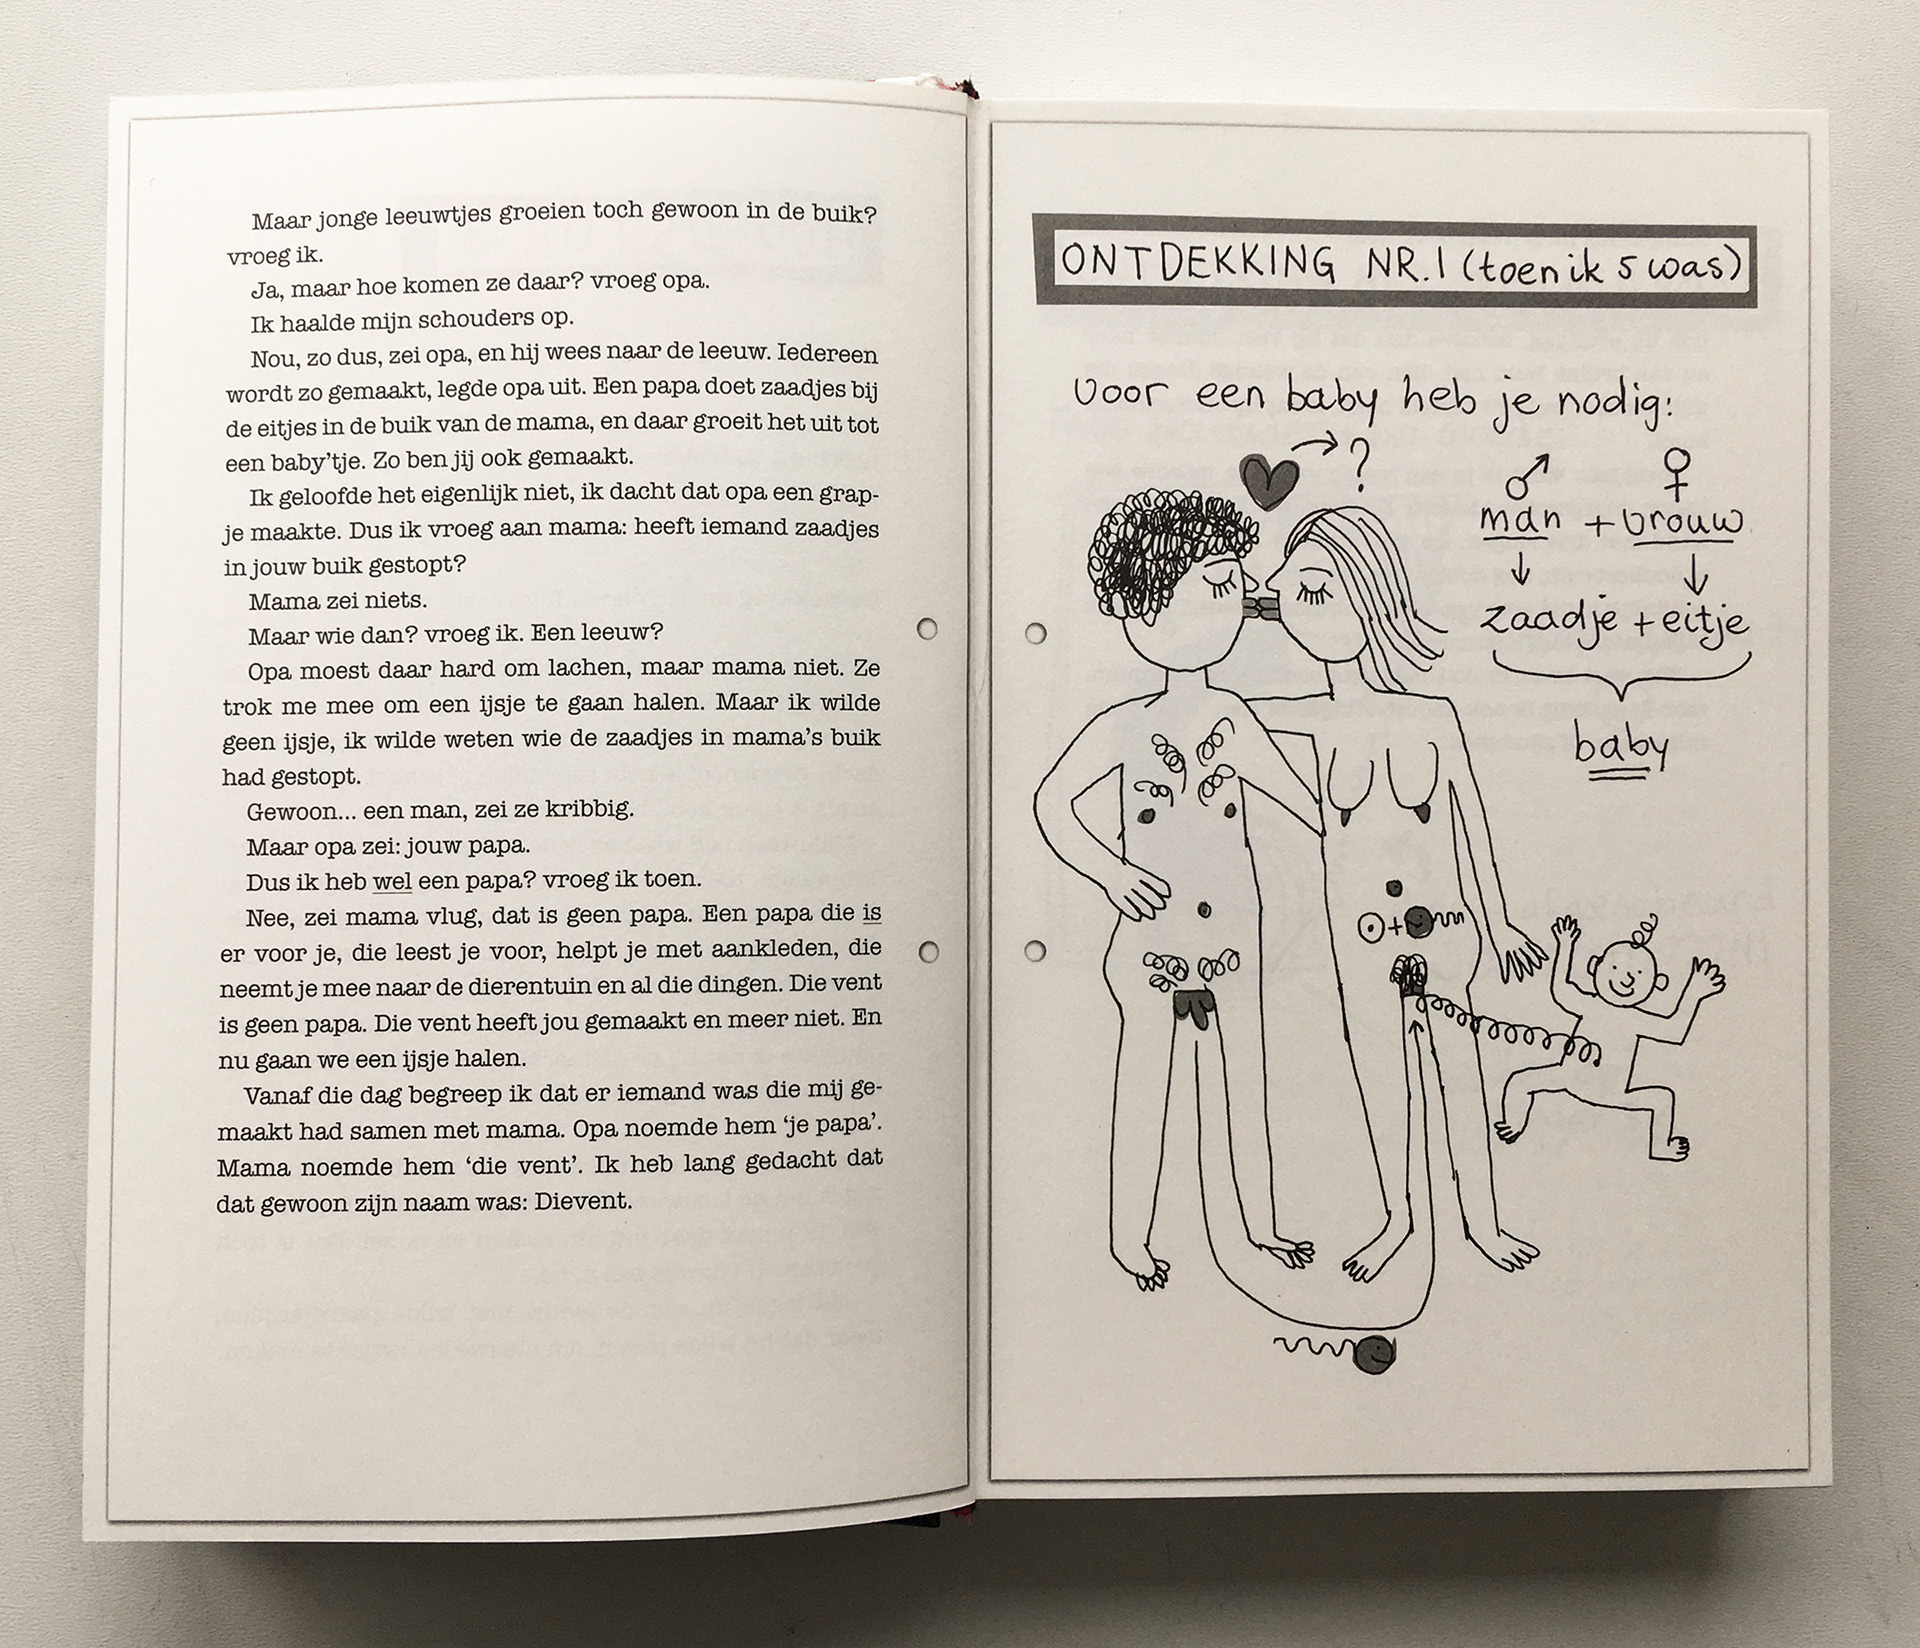 Maar jonge leeuwtjes groeien toch gewoon in de buik?
vroeg ik.
Ja, maar hoe komen ze daar? vroeg opa.
Ik haalde mijn schouders op.
Nou, zo dus, zei opa, en hij wees naar de leeuw. Iedereen
wordt zo gemaakt, legde opa uit. Een papa doet zaadjes bij
de eitjes in de buik van de mama, en daar groeit het uit tot
een baby'tje. Zo ben jij ook gemaakt.
Ik geloofde het eigenlijk niet, ik dacht dat opa een grap-
je maakte. Dus ik vroeg aan mama: heeft iemand zaadjes
in jouw buik gestopt?
Mama zei niets.
Maar wie dan? vroeg ik. Een leeuw?
Opa moest daar hard om lachen, maar mama niet. Ze
trok me mee om een ijsje te gaan halen. Maar ik wilde
geen ijsje, ik wilde weten wie de zaadjes in mama's buik
had gestopt.
Gewoon... een man, zei ze kribbig.
Maar opa zei: jouw papa.
Dus ik heb wel een papa? vroeg ik toen.
Nee, zei mama vlug, dat is geen papa. Een papa die is
er voor je, die leest je voor, helpt je met aankleden, die
neemt je mee naar de dierentuin en al die dingen. Die vent
is geen papa. Die vent heeft jou gemaakt en meer niet. En
nu gaan we een ijsje halen.
Vanaf die dag begreep ik dat er iemand was die mij ge-
maakt had samen met mama. Opa noemde hem 'je papa'.
Mama noemde hem 'die vent'. Ik heb lang gedacht dat
dat gewoon zijn naam was: Dievent.
ONTDEKKING NR.1 (toen ik 5 was)
Voor een baby heb je nodig:
?
♂ ♀
man + vrouw
↓ ↓
zaadje + eitje
baby
+